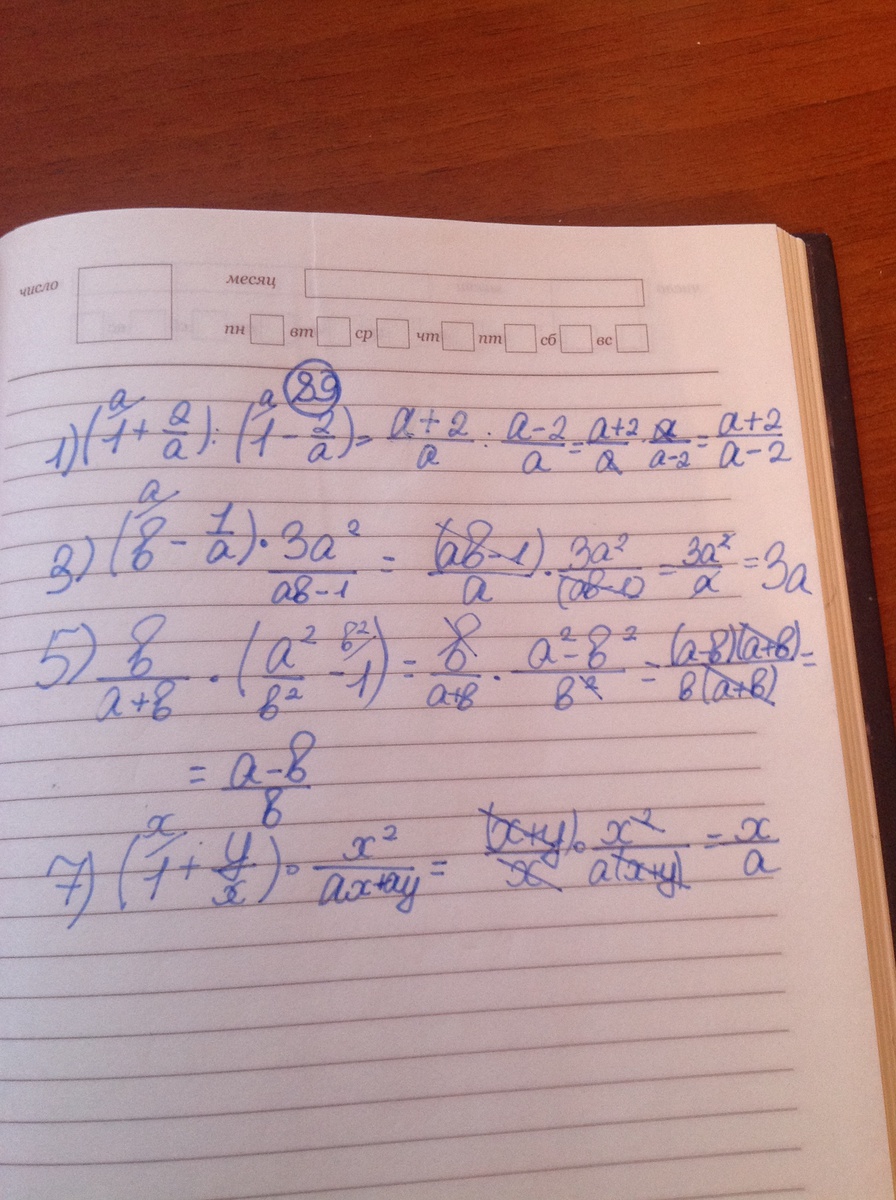 число месяц
пн вт ср чт пт сб вс
89
1) (1 + 2/a) : (1 - 2/a) = a+2/a : a-2/a = a+2/a · a/a-2 = a+2/a-2
3) (b - 1/a) · 3a²/ab-1 = (ab-1)/a · 3a²/(ab-1) = 3a²/a = 3a
5) b/a+b · (a²/b² - 1) = b/a+b · a²-b²/b² = (a-b)(a+b)/b(a+b) =
= a-b/b
7) (1 + y/x) · x²/ax+ay = (x+y)/x · x²/a(x+y) = x/a